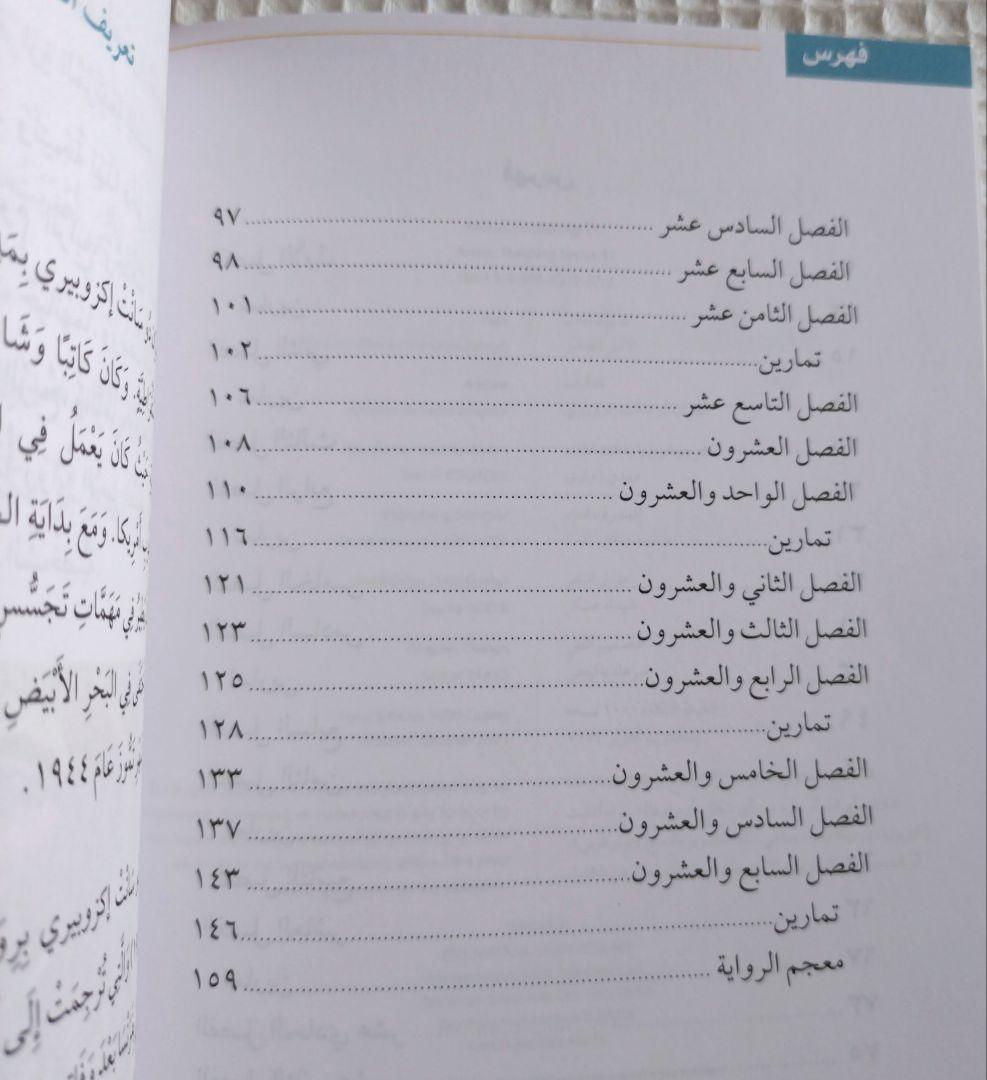 فهرس
الفصل السادس عشر ٩٧
الفصل السابع عشر ٩٨
الفصل الثامن عشر ١٠١
تمارين ١٠٢
الفصل التاسع عشر ١٠٦
الفصل العشرون ١٠٨
الفصل الواحد والعشرون ١١٠
تمارين ١١٦
الفصل الثاني والعشرون ١٢١
الفصل الثالث والعشرون ١٢٣
الفصل الرابع والعشرون ١٢٥
تمارين ١٢٨
الفصل الخامس والعشرون ١٣٣
الفصل السادس والعشرون ١٣٧
الفصل السابع والعشرون ١٤٣
تمارين ١٤٦
معجم الرواية ١٥٩
تعريف
إكزوبيري
وَكَانَ كَاتِبًا
كَانَ يَعْمَلُ فِي
أَمْرِيكا. وَمَعَ بِدَايَةِ
مَهَمَّاتِ تَجَسُّسِ
فِي البَحْرِ الأَبْيَضِ
عَامَ ١٩٤٤.
إكزوبيري
تُرْجِمَتْ إِلَى